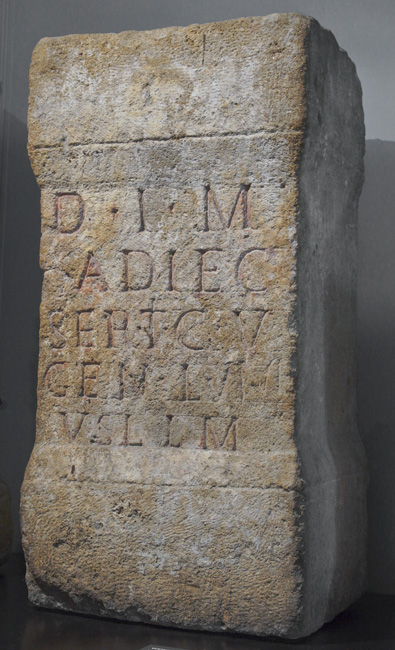 D · I · M
ADIEC
SEPT C V
GEM
V S L L M